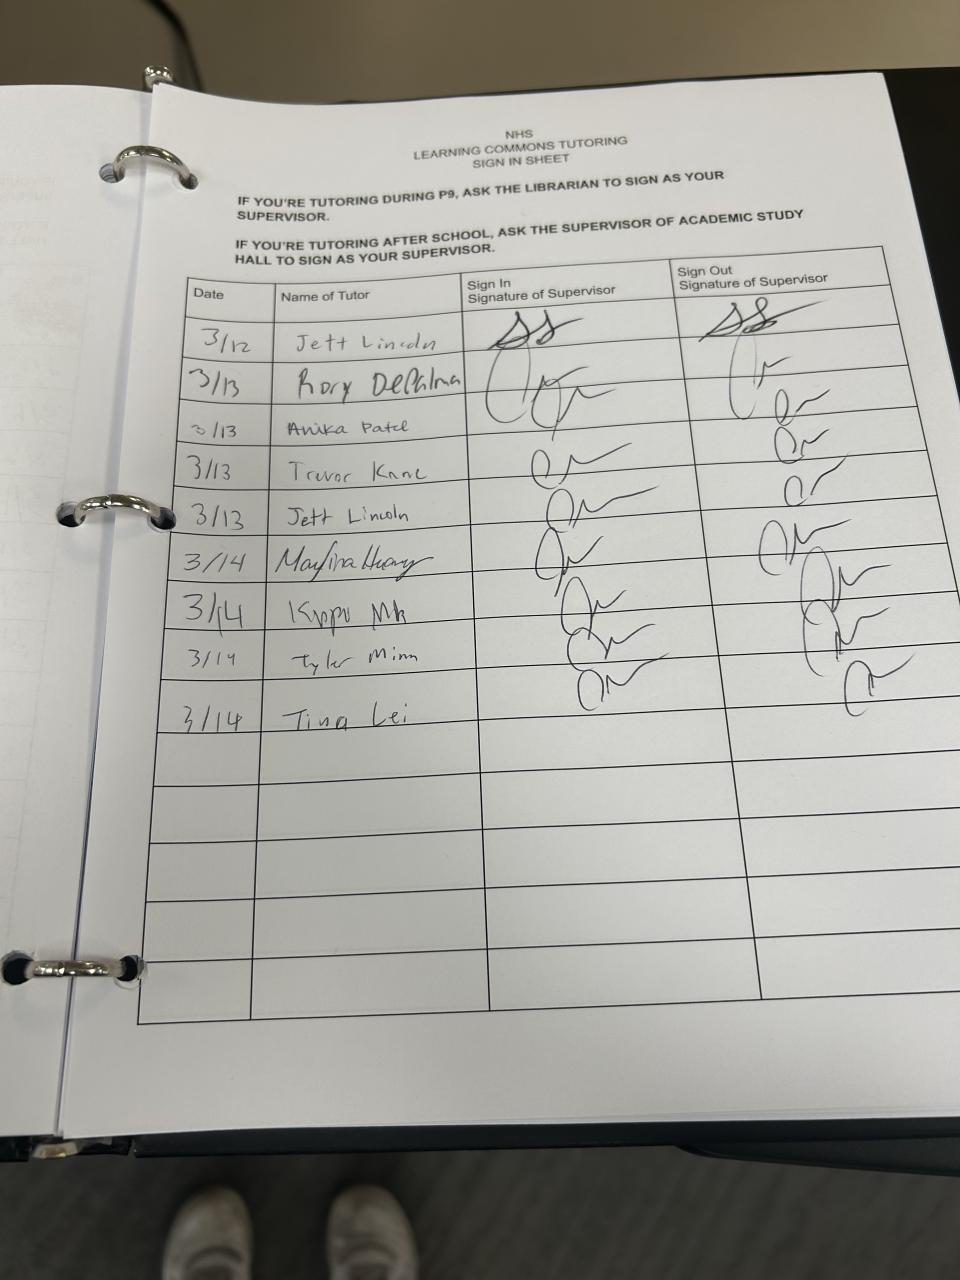 NHS
LEARNING COMMONS TUTORING
SIGN IN SHEET
IF YOU'RE TUTORING DURING P9, ASK THE LIBRARIAN TO SIGN AS YOUR
SUPERVISOR.
IF YOU'RE TUTORING AFTER SCHOOL, ASK THE SUPERVISOR OF ACADEMIC STUDY
HALL TO SIGN AS YOUR SUPERVISOR.
Date Name of Tutor Sign In Signature of Supervisor Sign Out Signature of Supervisor
3/12 Jett Lincoln SS SS
3/13 Rory DePalma
3/13 Anika Patel
3/13 Trevor
3/13 Jett Lincoln
3/14
3/14
3/14 Tyler Minn
3/14 Tina Lei